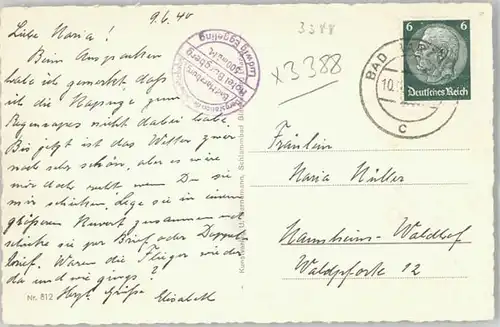 9.6.40
Liebe Maria!
Beim Auspacken
habe ich gemerkt, dass
ich die Kapuze zum
Regencape nicht dabei habe.
Bis jetzt ist das Wetter zwar
noch sehr schön, aber es wäre
mir doch recht wenn Du sie
mir schicken. Lege sie in einen
größeren Kuvert zusammen und
schicke sie per Brief oder Doppel-
brief. Waren die Flieger wieder
da und wie gings?
Herzl. Grüße Elisabeth
Nr. 812
Ludwig Eggeling
Hotel Burgberg
Bad Harzburg
3388
x3388
6 6
Deutsches Reich
BAD
10.
c
Fräulein
Maria Müller
Mannheim-Waldhof
Waldpforte 12